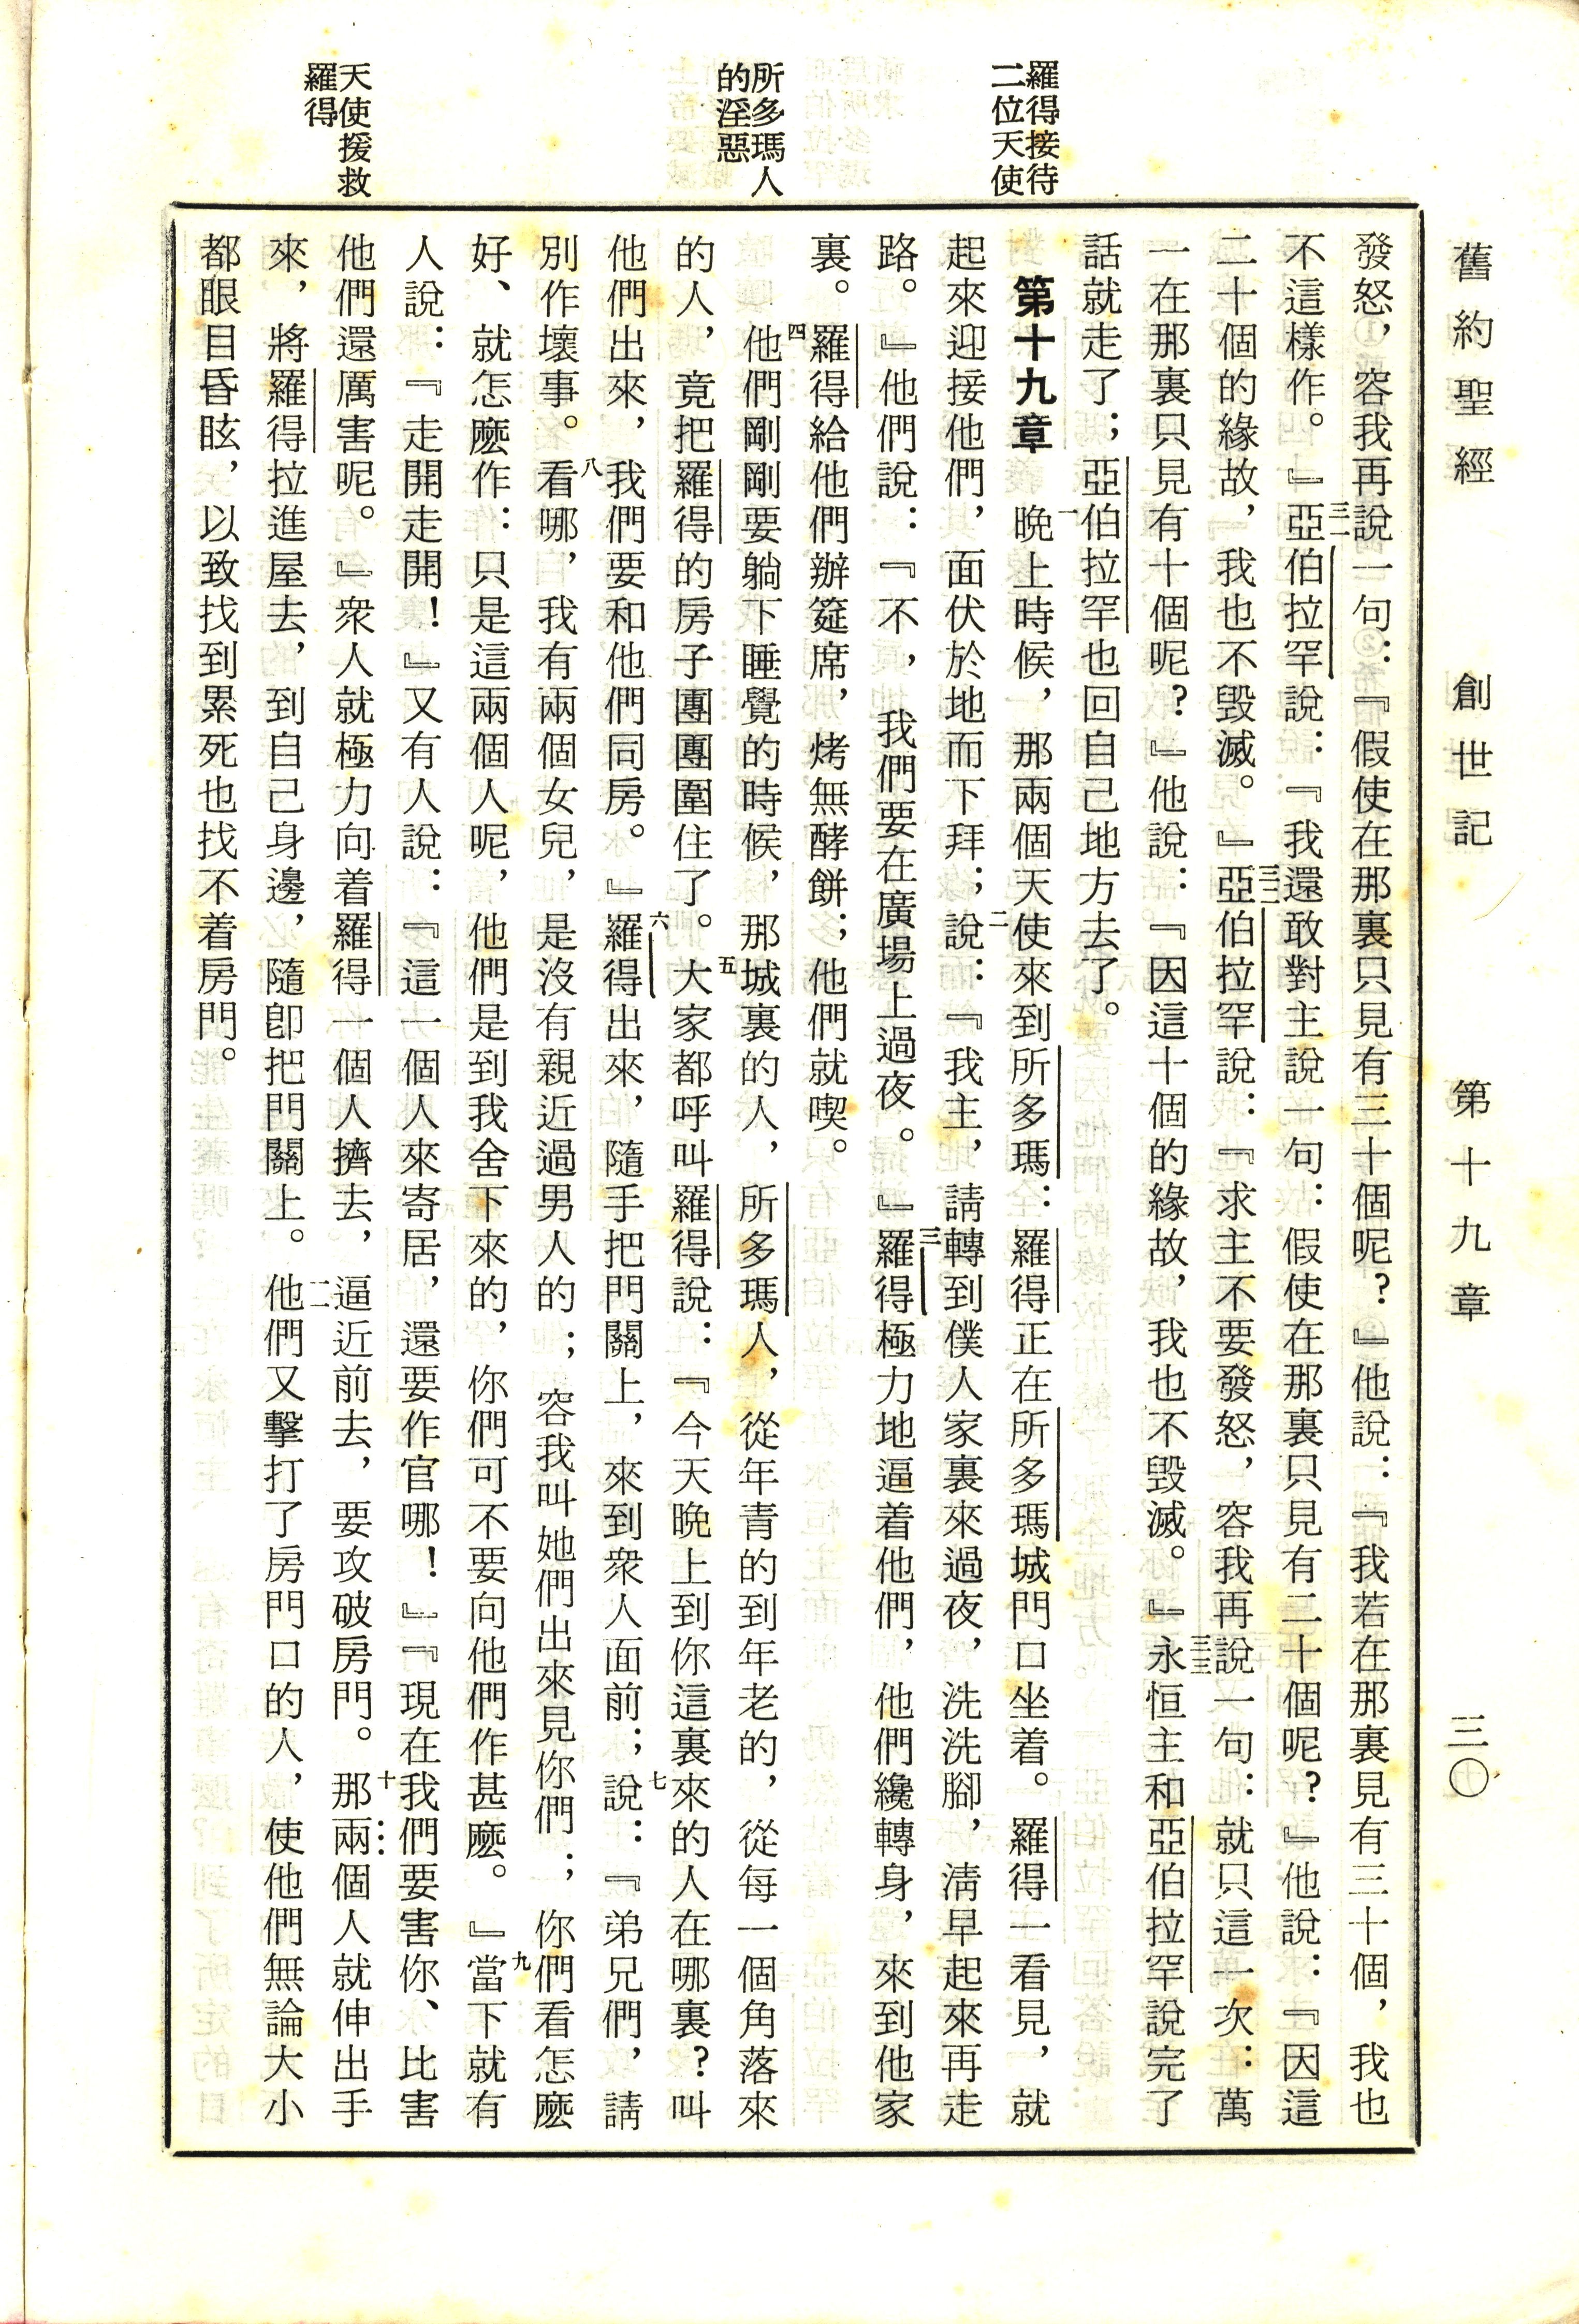 舊約聖經　創世記　第十九章　三〇
羅得接待
二位天使
所多瑪人
的淫惡
天使援救
羅得
發怒，容我再說一句：『假使在那裏只見有三十個呢？』他說：『我若在那裏見有三十個，我也
不這樣作。』三一亞伯拉罕說：『我還敢對主說一句：假使在那裏只見有二十個呢？』他說：『因這
二十個的緣故，我也不毀滅。』三二亞伯拉罕說：『求主不要發怒，容我再說一句：就只這一次：萬
一在那裏只見有十個呢？』他說：『因這十個的緣故，我也不毀滅。』三三永恒主和亞伯拉罕說完了
話就走了；亞伯拉罕也回自己地方去了。
第十九章　一晚上時候，那兩個天使來到所多瑪：羅得正在所多瑪城門口坐着。羅得一看見，就
起來迎接他們，面伏於地而下拜；二說：『我主，請轉到僕人家裏來過夜，洗洗腳，淸早起來再走
路。』他們說：『不，我們要在廣場上過夜。』三羅得極力地逼着他們，他們纔轉身，來到他家
裏。羅得給他們辦筵席，烤無酵餅；他們就喫。
四他們剛剛要躺下睡覺的時候，那城裏的人，所多瑪人，從年青的到年老的，從每一個角落來
的人，竟把羅得的房子團團圍住了。五大家都呼叫羅得說：『今天晚上到你這裏來的人在哪裏？叫
他們出來，我們要和他們同房。』六羅得出來，隨手把門關上，來到衆人面前；七說：『弟兄們，請
別作壞事。八看哪，我有兩個女兒，是沒有親近過男人的；容我叫她們出來見你們；你們看怎麼
好、就怎麼作：只是這兩個人呢，他們是到我舍下來的，你們可不要向他們作甚麼。』九當下就有
人說：『走開走開！』又有人說：『這一個人來寄居，還要作官哪！』『現在我們要害你、比害
他們還厲害呢。』衆人就極力向着羅得一個人擠去，逼近前去，要攻破房門。十那兩個人就伸出手
來，將羅得拉進屋去，到自己身邊，隨卽把門關上。一一他們又擊打了房門口的人，使他們無論大小
都眼目昏眩，以致找到累死也找不着房門。